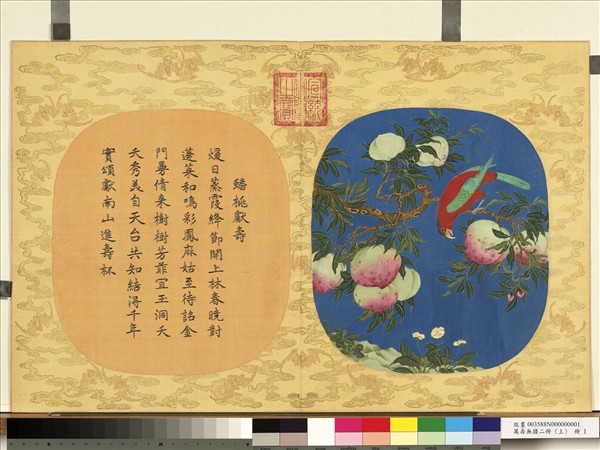 蟠桃獻壽
煖日蒸霞絳節開上林春曉對
蓬萊和鳴彩鳳麻姑至待詔金
門曼倩來樹樹芳菲宜玉洞夭
夭秀美自天台共知結得千年
實頌獻南山進壽杯
故畫 003588N000000001
萬壽無疆二冊（上） 冊 1